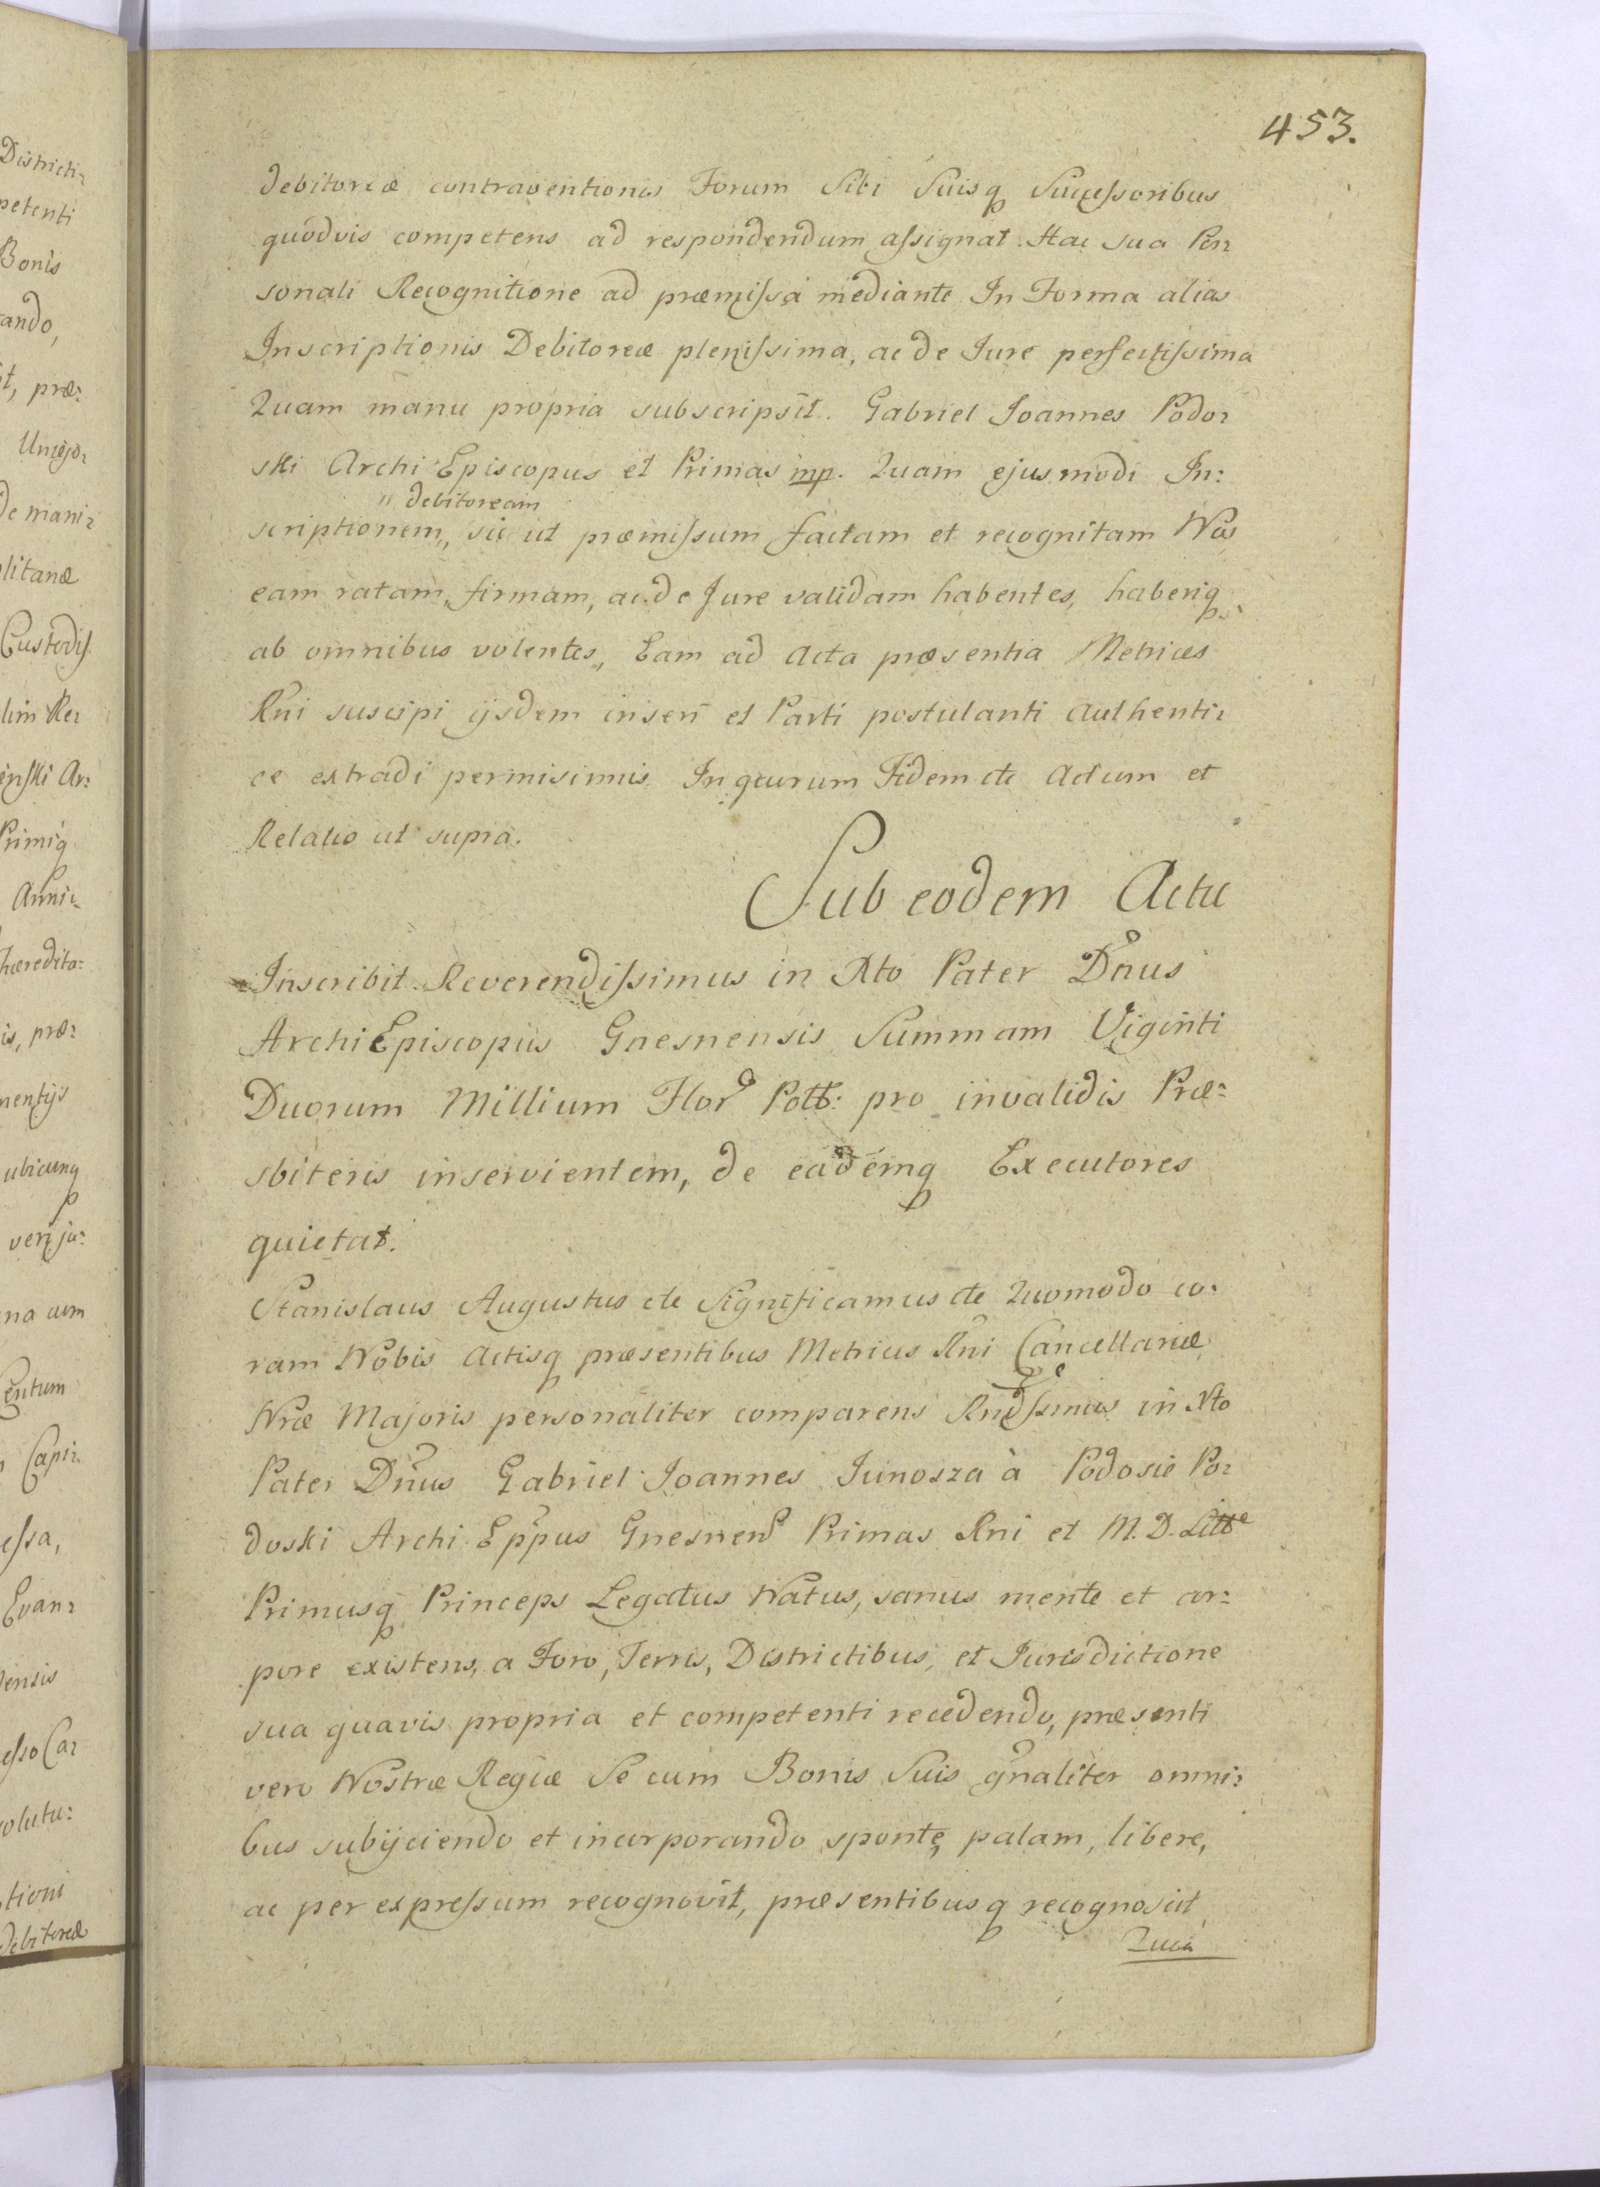 453.
debitoreæ contraventionis Forum Sibi Suisq Sucessoribus
quodvis competens ad respondendum assignat. Hac sua Per:
sonali Recognitione ad præmissa mediante In Forma alias
Inscriptionis Debitoreæ plenissima, ac de Jure perfectissima
Quam manu propria subscripsit. Gabriel Joannes Podo:
ski Archi Episcopus et Primas mp. Quam ejusmodi In:
" debitoream
scriptionem,, sic ut præmissum factam et recognitam Nos
eam ratam, firmam, ac de Jure validam habentes, haberiq
ab omnibus volentes, Eam ad Acta præsentia Metrices
Rni suscipi ijsdem inseri et Parti postulanti Authenti:
ce extradi permisimus. In quorum Fidem etc Actum et
Relatio ut supra.
Sub eodem Actu
Inscribit Reverendissimus in Xto Pater Dnus
ArchiEpiscopus Gnesnensis Summam Viginti
Duorum Millium Flor Poll: pro invalidis Præ:
sbiteris inservientem, de eademq Executores
quietat.
Stanislaus Augustus etc Significamus etc Quomodo co:
ram Nobis Actisq præsentibus Metrices Rni Cancellariæ
Nræ Majoris personaliter comparens Rndssimus in Xto
Pater Dnus Gabriel Joannes Junosza à Podosie Po:
doski Archi Eppus Gnesnens Primas Rni et M. D. Litt
Primusq Princeps Legatus Natus, sanus mente et cor:
pore existens, a Foro, Terris, Districtibus, et Jurisdictione
sua quavis propria et competenti recedendo, præsenti
vero Nostræ Regiæ Se cum Bonis Suis gnaliter omni:
bus subijciendo et incorporando sponte, palam, libere,
ac per expressum recognovit, præsentibusq recognoscit
Quia
Districti:
petenti
Bonis
ando,
t, præ:
Uniejo:
De mani:
litanæ
Custodis.
lim Re:
inski Ar:
Primiq
Anni:
hæredita:
is, præ:
mentijs
ubicunq
veri ju:
na cum
Centum
Capi:
essa,
Evan:
ensis
esso Ca:
olutu:
tioni
debitoreæ